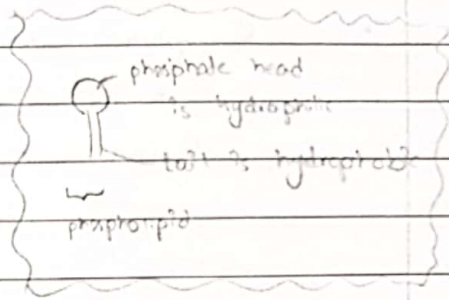 phosphate head
is hydrophilic
tail is hydrophobic
phospholipid